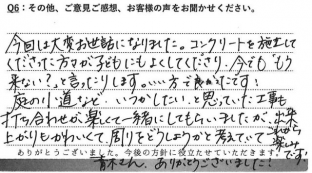 Q6：その他、ご意見ご感想、お客様の声をお聞かせください。
今回は大変お世話になりました。コンクリートを施工して
くださった方々が子どもにもよくしてくださり、今でも"もう
来ない?"と言ったりします。いい方で良かったです!
庭の小道など、いつかしたい!と思っていた工事も
打ち合わせが楽しくて一緒にしてもらいましたが、出来
上がりもかわいくて、周りをどうしようかと考えていて
これから
楽しみ
です!
ありがとうございました。今後の方針に役立たせていただきます。
青木さん、ありがとうございました!